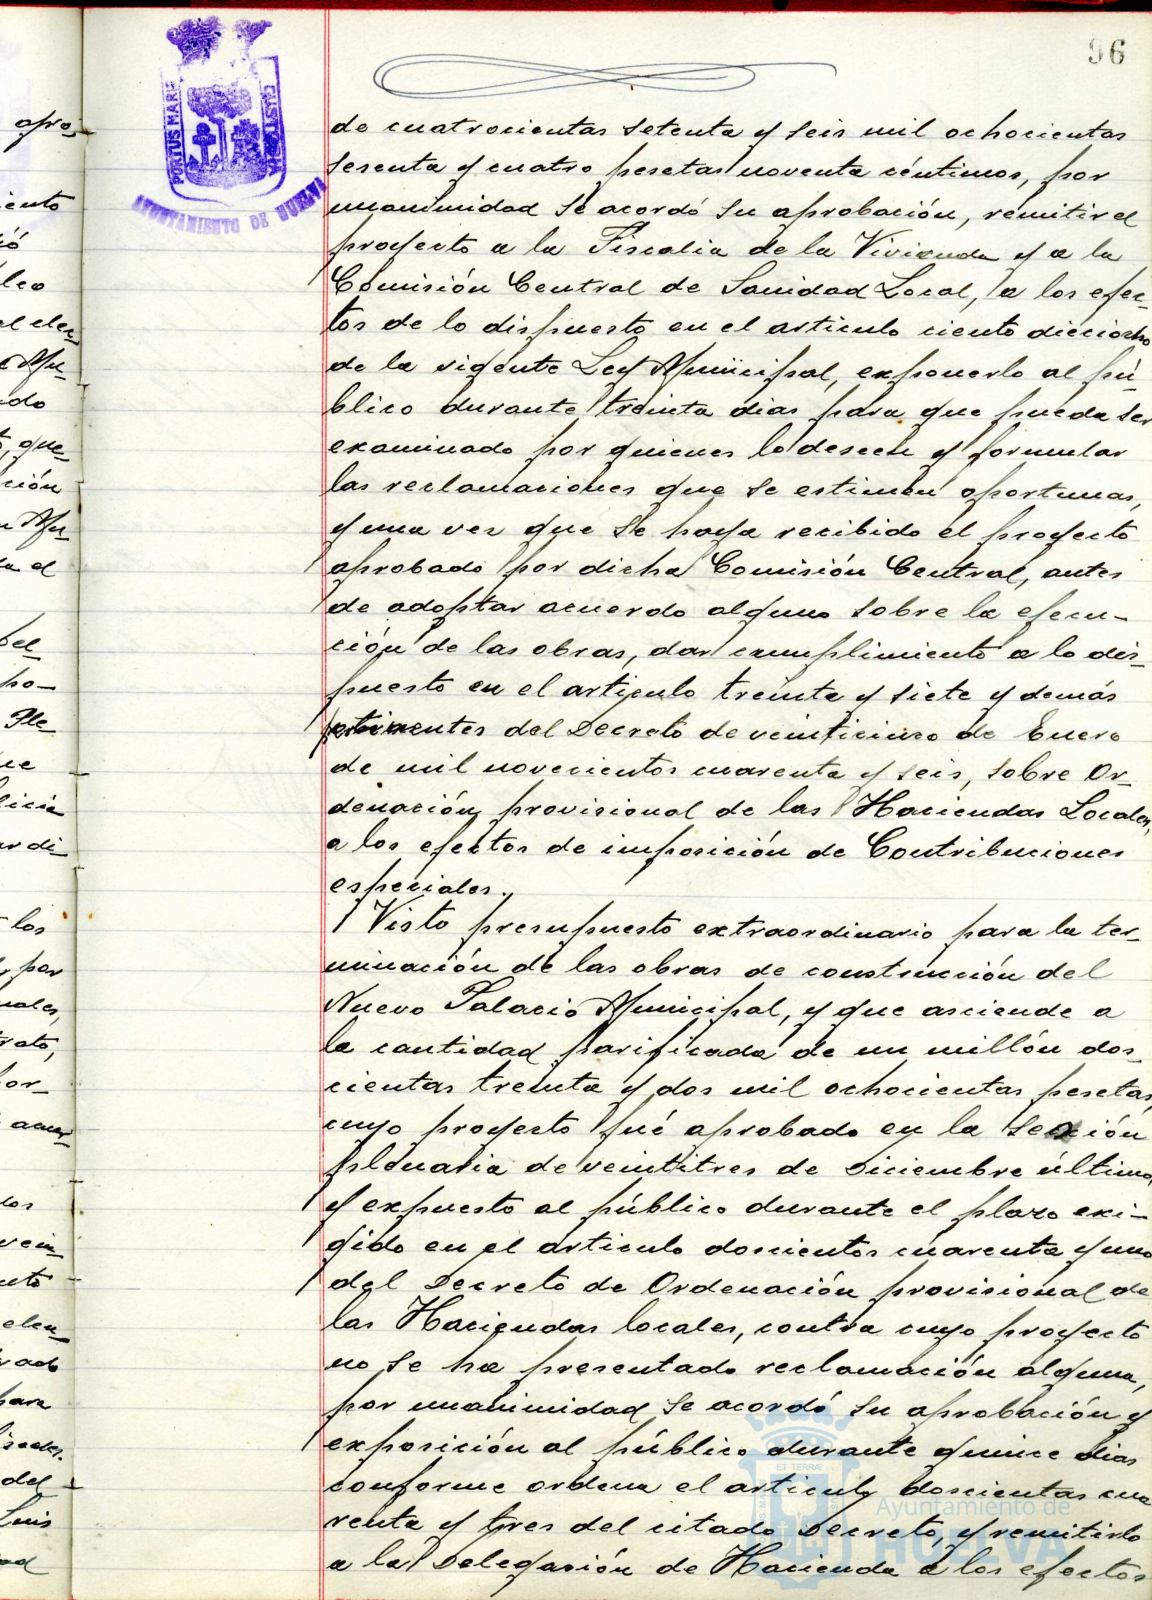 96
PORTUS MARIS
AYUNTAMIENTO DE HUELVA
de cuatrocientas setenta y seis mil ochocientas
sesenta y cuatro pesetas noventa céntimos, por
unanimidad se acordó su aprobación, remitir el
proyecto a la Fiscalia de la Vivienda y a la
Comisión Central de Sanidad Local, a los efec-
tos de lo dispuesto en el articulo ciento dieciocho
de la vigente Ley Municipal, exponerlo al pú-
blico durante treinta dias para que pueda ser
examinado por quienes lo deseen y formular
las reclamaciones que se estimen oportunas,
y una vez que se haya recibido el proyecto
aprobado por dicha Comisión Central, antes
de adoptar acuerdo alguno sobre la ejecu-
ción de las obras, dar cumplimiento a lo dis-
puesto en el articulo treinta y siete y demás
pertinentes del Decreto de veinticinco de Enero
de mil novecientos cuarenta y seis, sobre Or-
denación provisional de las Haciendas Locales,
a los efectos de imposición de Contribuciones
especiales.
Visto presupuesto extraordinario para la ter-
minación de las obras de construcción del
Nuevo Palacio Municipal, y que asciende a
la cantidad parificada de un millón dos-
cientas treinta y dos mil ochocientas pesetas,
cuyo proyecto fué aprobado en la sesión
plenaria de veintitres de Diciembre último,
y expuesto al público durante el plazo exi-
gido en el articulo doscientos cuarenta y uno
del Decreto de Ordenación provisional de
las Haciendas locales, contra cuyo proyecto
no se ha presentado reclamación alguna,
por unanimidad se acordó su aprobación y
exposición al público durante quince dias
conforme ordena el articulo doscientas cua
renta y tres del citado Decreto, y remitirlo
a la Delegación de Hacienda a los efectos
Ayuntamiento de
HUELVA